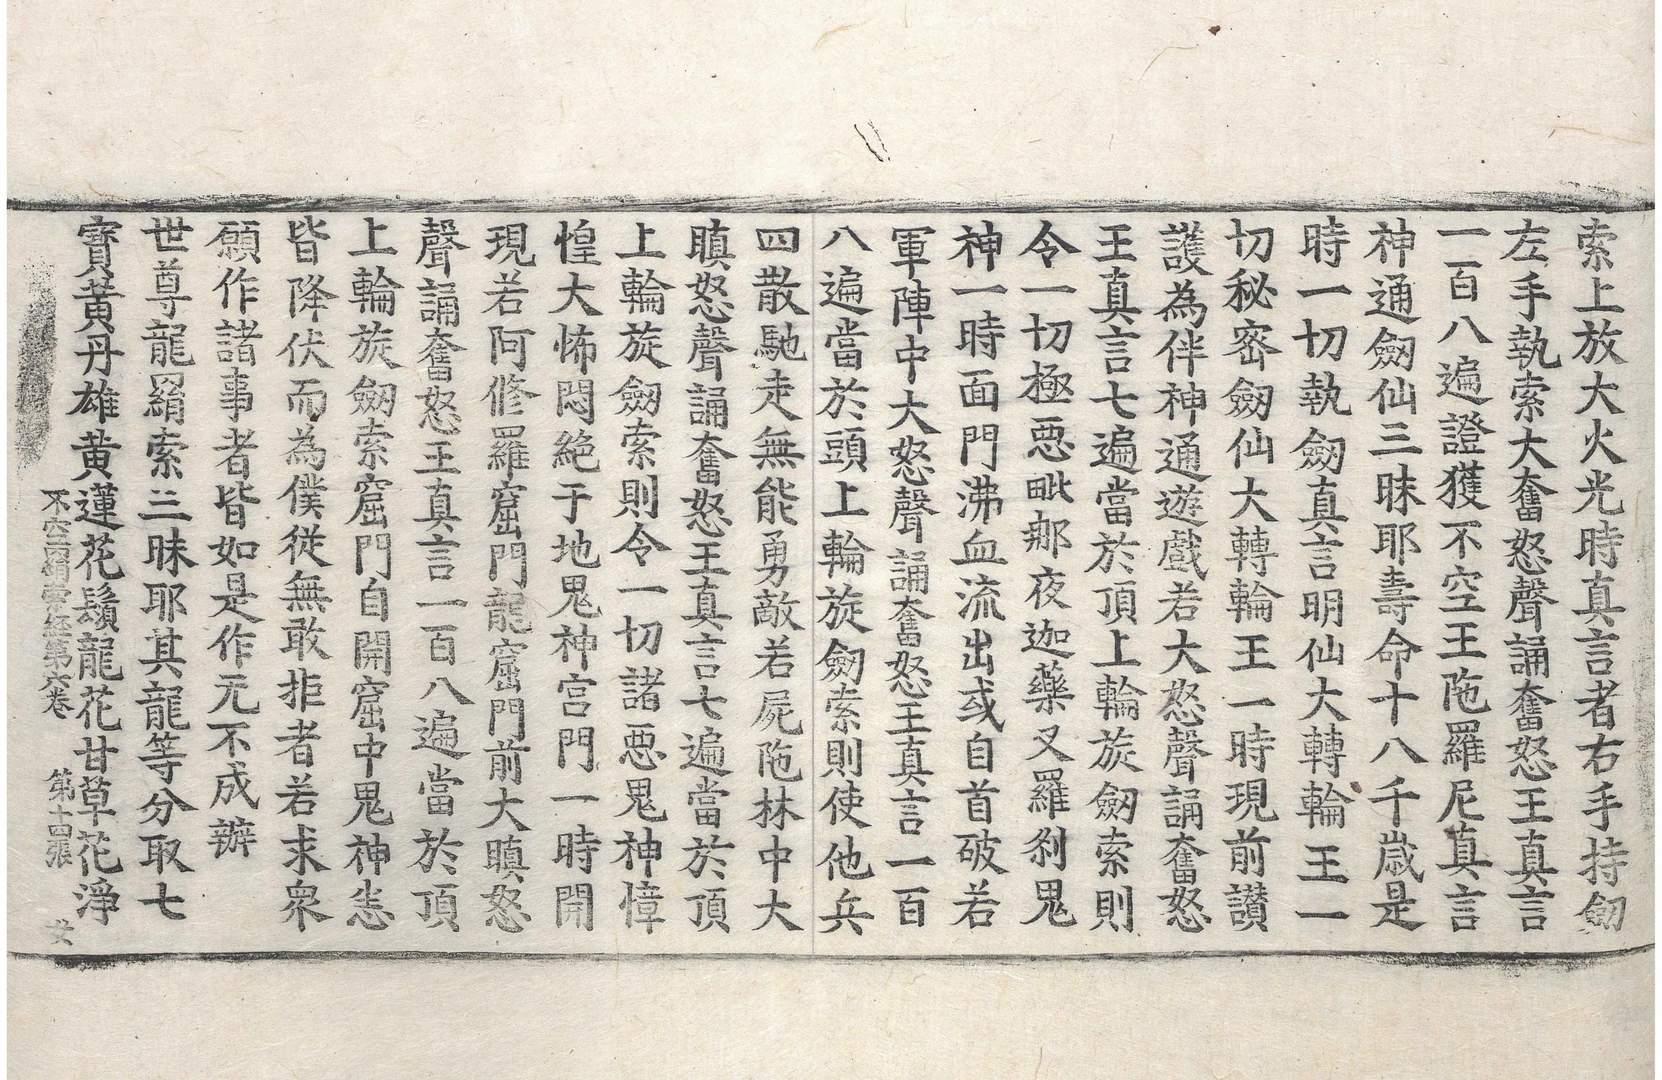 索上放大火光時真言者右手持劒
左手執索大奮怒聲誦奮怒王真言
一百八遍證獲不空王陁羅尼真言
神通劒仙三昧耶壽命十八千歲是
時一切執劒真言明仙大轉輪王一
切秘密劒仙大轉輪王一時現前讃
護為伴神通遊戲若大怒聲誦奮怒
王真言七遍當於頂上輪旋劒索則
令一切極惡毗那夜迦藥叉羅剎鬼
神一時面門沸血流出或自首破若
軍陣中大怒聲誦奮怒王真言一百
八遍當於頭上輪旋劒索則使他兵
四散馳走無能勇敵若屍陁林中大
瞋怒聲誦奮怒王真言七遍當於頂
上輪旋劒索則令一切諸惡鬼神慞
惶大怖悶絕于地鬼神宮門一時開
現若阿修羅窟門龍窟門前大瞋怒
聲誦奮怒王真言一百八遍當於頂
上輪旋劒索窟門自開窟中鬼神恙
皆降伏而為僕從無敢拒者若求衆
願作諸事者皆如是作元不成辦
世尊龍羂索三昧耶其龍等分取七
寶黃丹雄黃蓮花鬚龍花甘草花淨
不空羂索經第六卷 第十四張 女